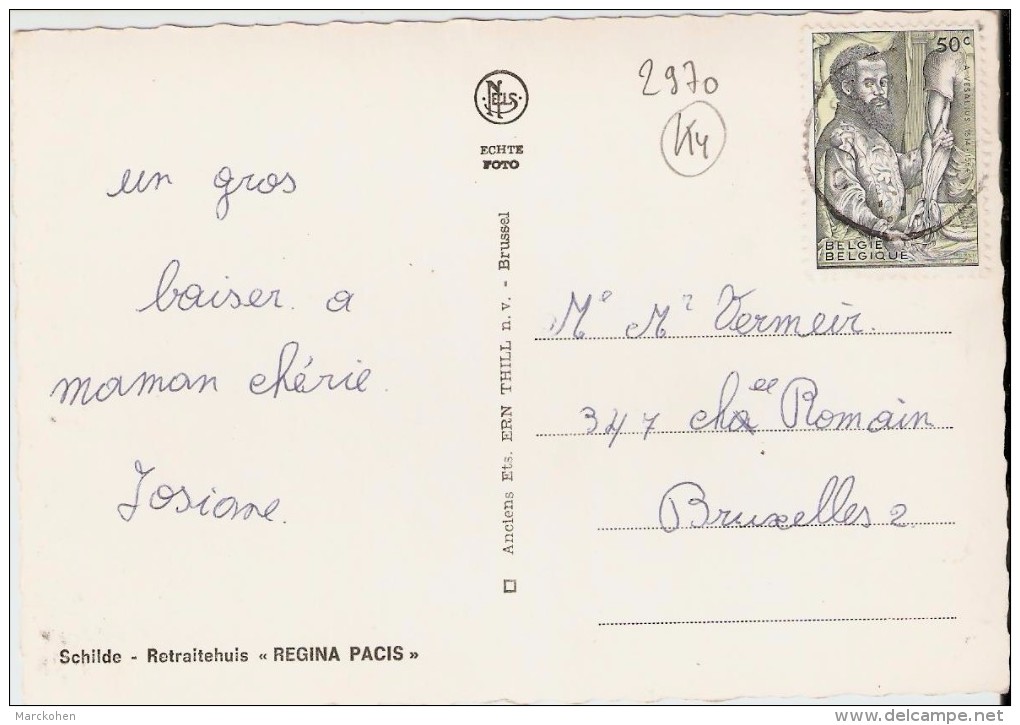 un gros
baiser. a
maman chérie.
Josiane.
Schilde - Retraitehuis « REGINA PACIS »
NELS
ECHTE
FOTO
Anciens Ets. ERN THILL n. v. - Brussel
2970
K4
50 c
A. VESALIUS 1514 -
BELGIE
BELGIQUE
Me Mr Vermeir.
347 chée Romain
Bruxelles 2.
Marckohen
delcampe.net